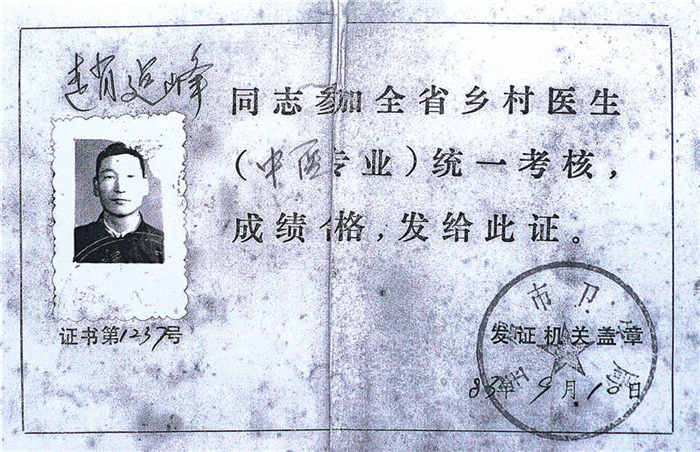 趙延峰 同志参加全省乡村医生
(中医专业)统一考核,
成绩合格,发给此证。
证书第1237号
市卫
局
发证机关盖章
83年9月10日